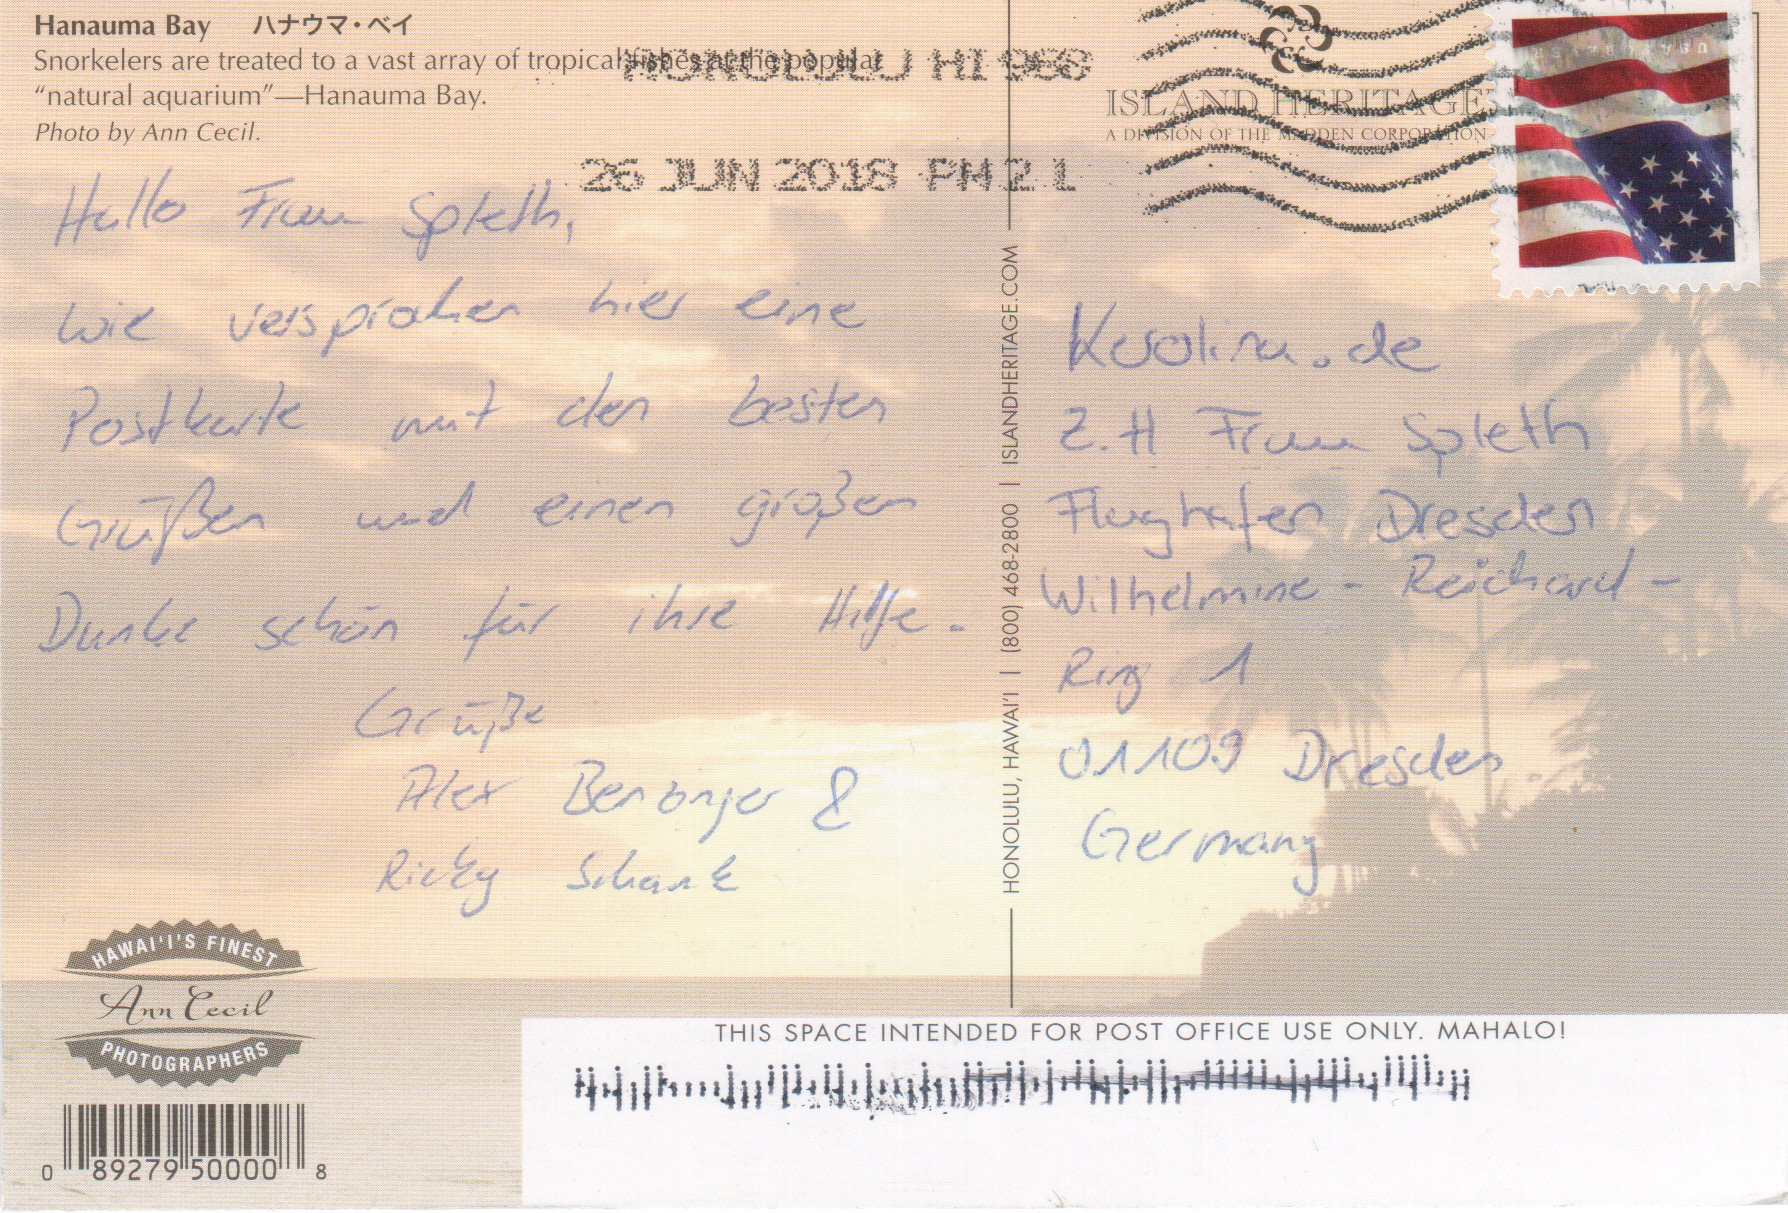 Hanauma Bay ハナウマ・ベイ
Snorkelers are treated to a vast array of tropical fishes at the popular
“natural aquarium”—Hanauma Bay.
Photo by Ann Cecil.
HONOLULU HI 968
26 JUN 2018 PM 2 L
ISLAND HERITAGE
A DIVISION OF THE MADDEN CORPORATION
USA FOREVER
Hallo Frau Spleth,
wie versprochen hier eine
Postkarte mit den besten
Grüßen und einen großen
Danke schön für ihre Hilfe.
Grüße
Alex &
Ricky Schank
HONOLULU, HAWAI'I | (800) 468-2800 | ISLANDHERITAGE.COM
Kurolina.de
Z.H Frau Spleth
Flughafen Dresden
Wilhelmine - Reichard -
Ring 1
01109 Dresden
Germany
HAWAI'I'S FINEST
Ann Cecil
PHOTOGRAPHERS
0 89279 50000 8
THIS SPACE INTENDED FOR POST OFFICE USE ONLY. MAHALO!